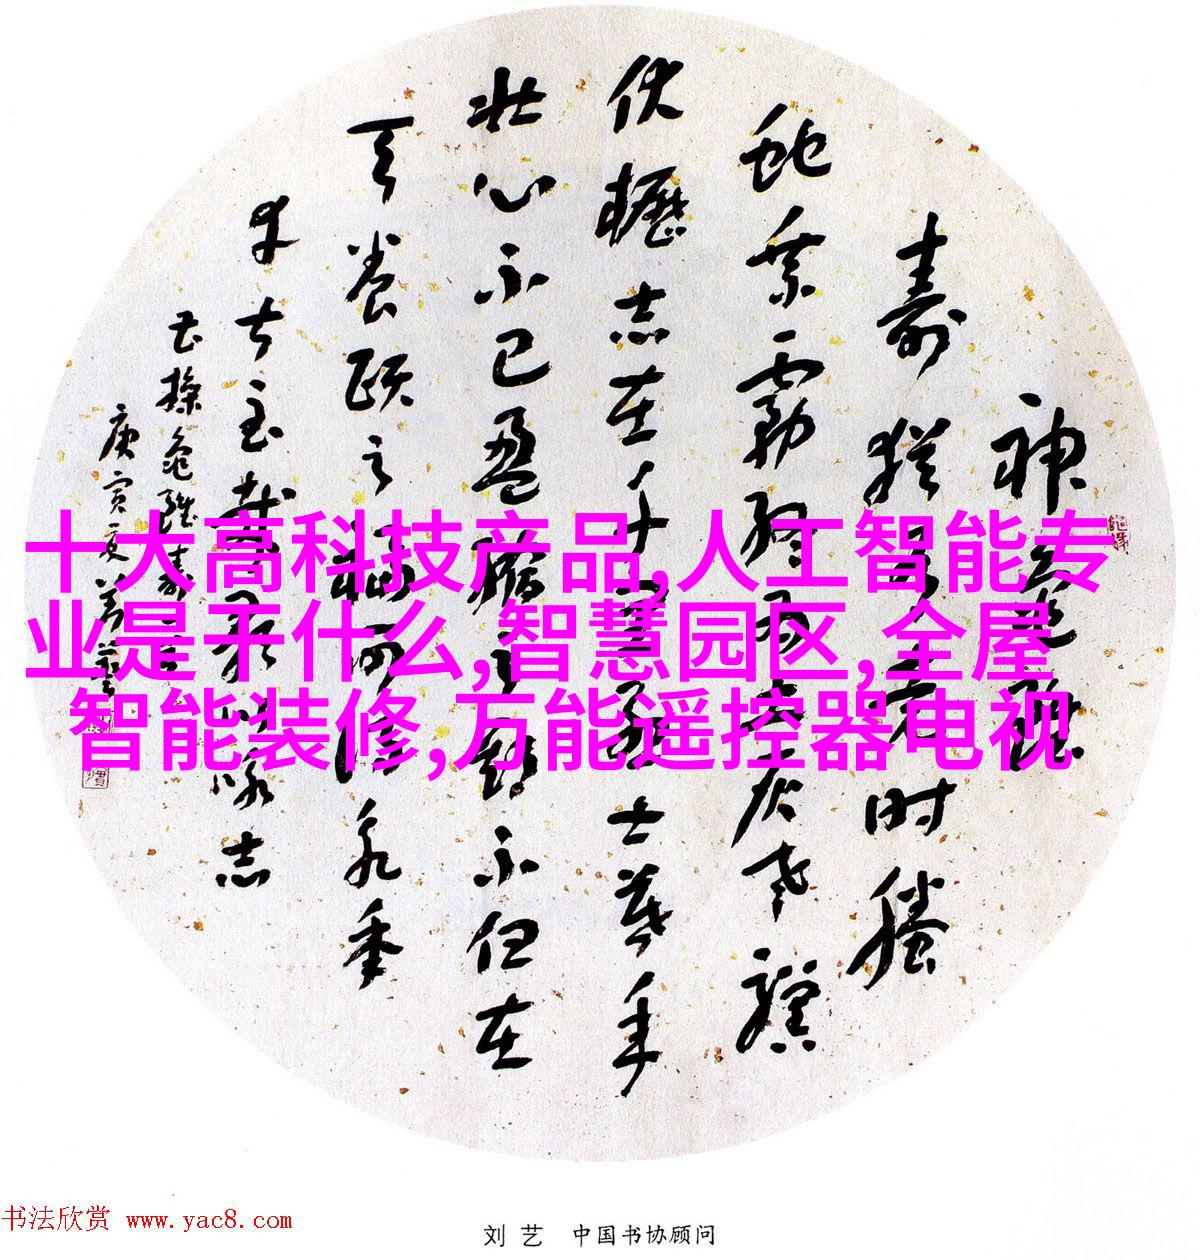 神龟雖
壽猶有竟时騰
蛇乘霧終為土灰老驥
伏櫪志在千里烈士暮年
壮心不已盈縮之期不但在
天養頤之福可得永年
幸甚至哉歌以咏志
曹操龟雖壽
庚寅夏
十大高科技产品,人工智能专
业是干什么,智慧园区,全屋
智能装修,万能遥控器电视
书法欣赏 www.yac8.com
刘艺 中国书协顾问